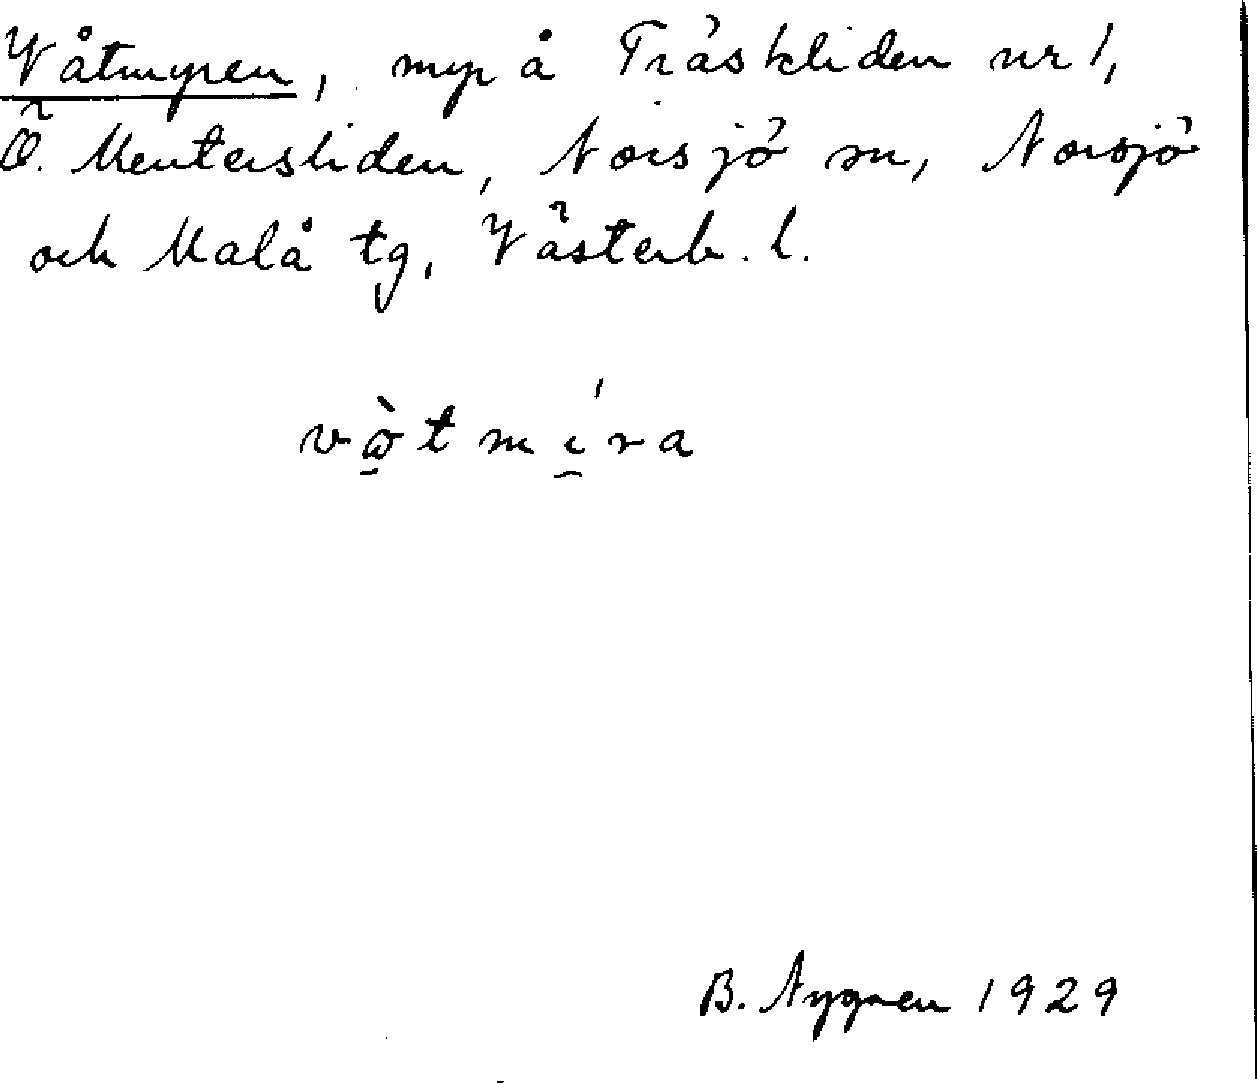 Våtmyren, myr å Träskliden nr 1,
Ö. Mentersliden, Norsjö sn, Norsjö
och Malå tg, Västerb. l.
vò̰tmí̯ra
B. Nygren 1929